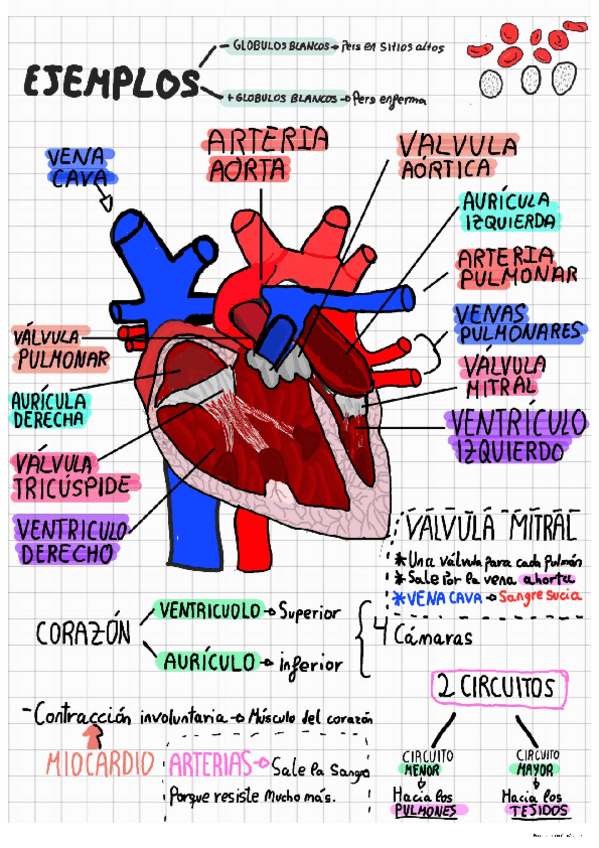 EJEMPLOS
GLOBULOS BLANCOS → Pers en Sitios altos
+ GLOBULOS BLANCOS → Pers enferma
VENA
CAVA
ARTERIA
AORTA
VALVULA
AÓRTICA
AURÍCULA
IZQUIERDA
ARTERIA
PULMONAR
VENAS
PULMONARES
VÁLVULA
MITRAL
VENTRÍCULO
IZQUIERDO
VÁLVULA
PULMONAR
AURÍCULA
DERECHA
VÁLVULA
TRICÚSPIDE
VENTRICULO
DERECHO
VALVULA MITRAL
* Una válvula para cada pulmón
* Sale por la vena ahorta
* VENA CAVA → Sangre sucia
CORAZÓN
VENTRICUOLO → Superior
AURÍCULO → inferior
4 Cámaras
2 CIRCUITOS
CIRCUITO
MENOR
Hacia los
PULMONES
CIRCUITO
MAYOR
Hacia los
TEJIDOS
- Contracción involuntaria → Músculo del corazón
MIOCARDIO
ARTERIAS → Sale la Sangre
Porque resiste Mucho más.